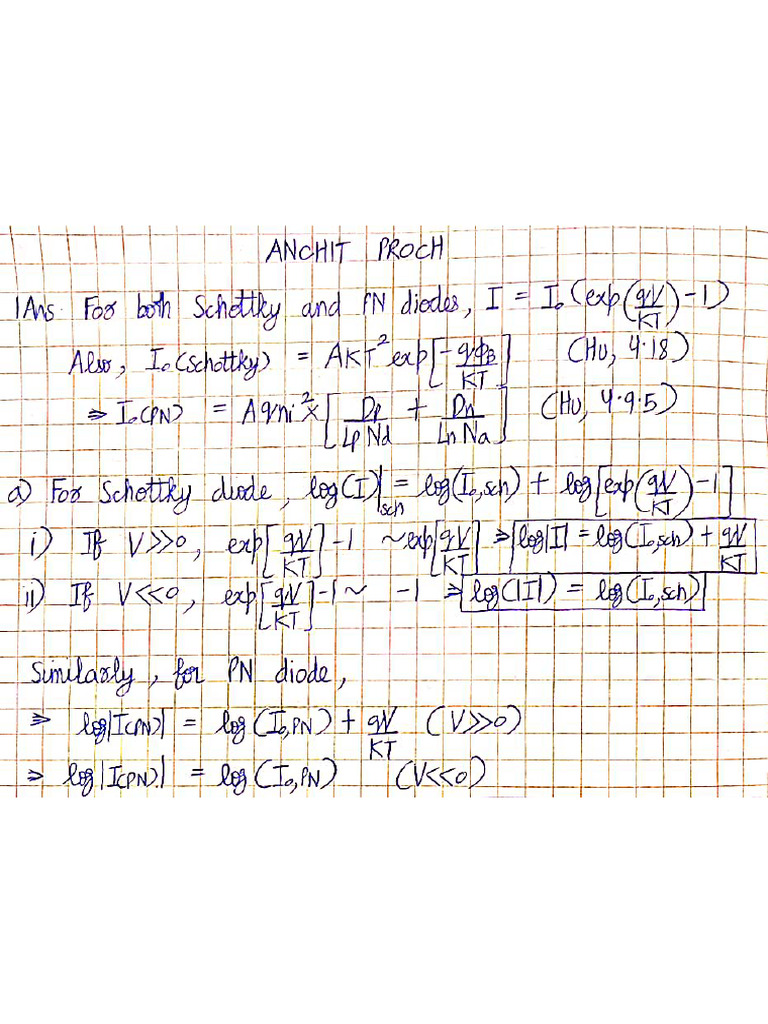 ANCHIT PROCH
1Ans. For both Schottky and PN diodes, I = I₀(exp(qV/KT)-1)
Also, I₀(Schottky) = AKT² exp[-qΦB/KT] (HU, 4.18)
⇒ I₀(PN) = Aqni² × [Dp/LpNd + Dn/LnNa] (HU, 4.9.5)
a) For Schottky diode, log(I)|sch = log(I₀,sch) + log[exp(qV/KT)-1]
i) If V>>>0, exp[qV/KT]-1 ~ exp[qV/KT] ⇒ log|I| = log(I₀,sch) + qV/KT
ii) If V<<0, exp[qV/KT]-1 ~ -1 ⇒ log(|I|) = log(I₀,sch)
Similarly, for PN diode,
⇒ log|I(PN)| = log(I₀,PN) + qV/KT (V>>0)
⇒ log|I(PN)| = log(I₀,PN) (V<<0)